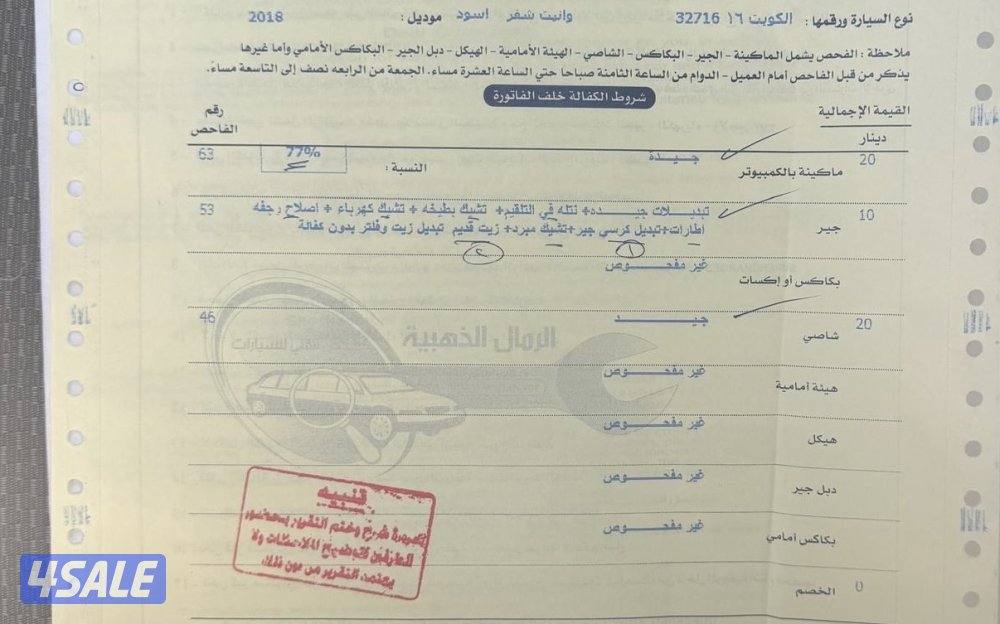 نوع السيارة ورقمها : الكويت ١٦ 32716 وانيت شفر اسود موديل : 2018
ملاحظة : الفحص يشمل الماكينة - الجير - البكاكس - الشاصي - الهيئة الأمامية - الهيكل - دبل الجير - البكاكس الأمامي وأما غيرها
يذكر من قبل الفاحص أمام العميل - الدوام من الساعة الثامنة صباحا حتي الساعة العشرة مساء. الجمعة من الرابعه نصف إلى التاسعة مساءً.
شروط الكفالة خلف الفاتورة
القيمة الإجمالية
رقم الفاحص
دينار
20 ماكينة بالكمبيوتر جيدة النسبة : 77% 63
10 جير تبديلات جيده+ نتله في التلقيم+ تشيك بطيخه + تشيك كهرباء + اصلاح رجفه 53
اطارات+تبديل كرسي جير+تشيك مبرد+ زيت قديم تبديل زيت وفلتر بدون كفالة
١ ٢
بكاكس أو إكسات غير مفحوص
20 شاصي جيد 46
الرمال الذهبية
هيئة أمامية غير مفحوص
هيكل غير مفحوص
دبل جير غير مفحوص
بكاكس أمامي غير مفحوص
0 الخصم
تنبيه
شرح وختم التقرير بحضور
الطرفين لتوضيح الملاحظات ولا
يعتمد التقرير من دون ذلك
4SALE